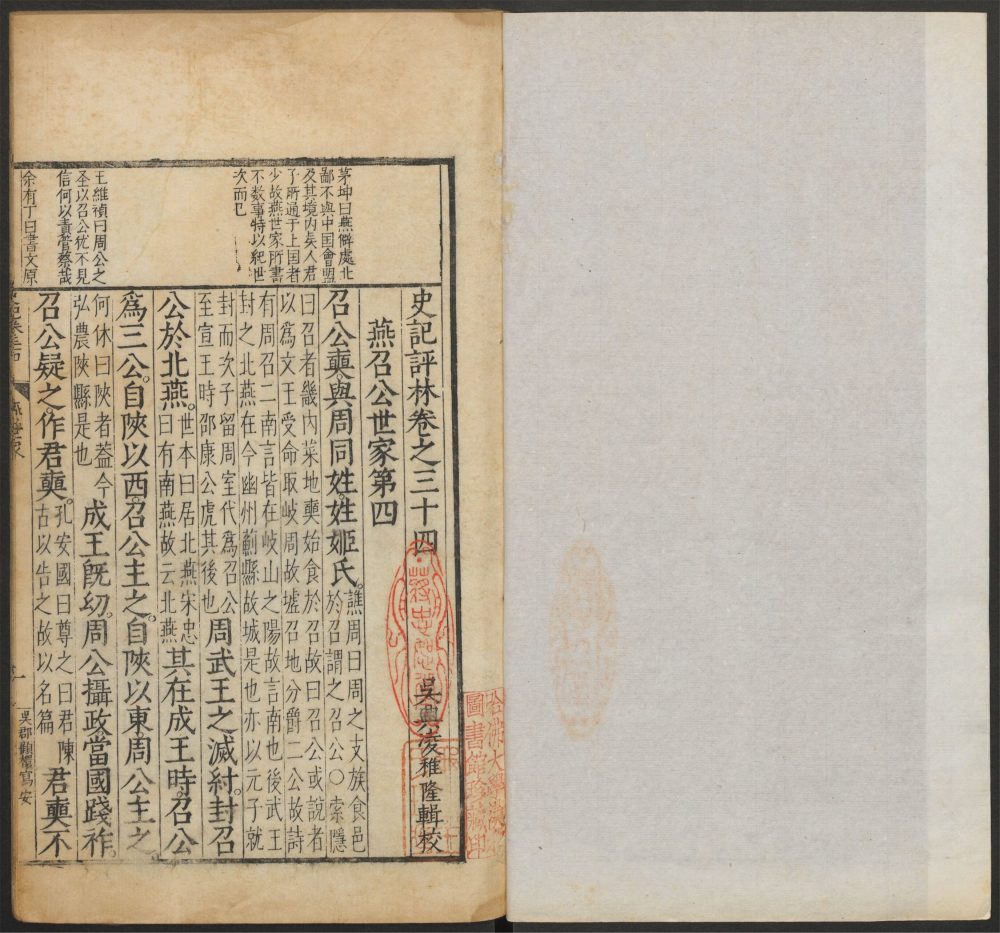 史記評林卷之三十四
吳興凌稚隆輯校
燕召公世家第四
召公奭與周同姓姓姬氏譙周曰周之支族食邑
於召謂之召公○索隱
曰召者畿內菜地奭始食於召故曰召公或說者
以爲文王受命取岐周故墟召地分爵二公故詩
有周召二南言皆在岐山之陽故言南也後武王
封之北燕在今幽州薊縣故城是也亦以元子就
封而次子留周室代爲召公
至宣王時邵康公虎其後也
周武王之滅紂封召
公於北燕世本曰居北燕宋忠
曰有南燕故云北燕
其在成王時召公
爲三公自陝以西召公主之自陝以東周公主之
何休曰陝者葢今
弘農陝縣是也
成王旣幼周公攝政當國踐祚
召公疑之作君奭孔安國曰尊之曰君陳
古以告之故以名篇
君奭不
茅坤曰燕僻處北
鄙不與中国會盟
及其境內矣人君
了所通于上国者
少故燕世家所書
不数事特以紀世
次而已
王維禎曰周公之
圣以召公犹不見
信何以責管蔡哉
余有丁曰書文原
一
吳郡顧櫰寫安
哈佛大學漢和
圖書館珍藏印